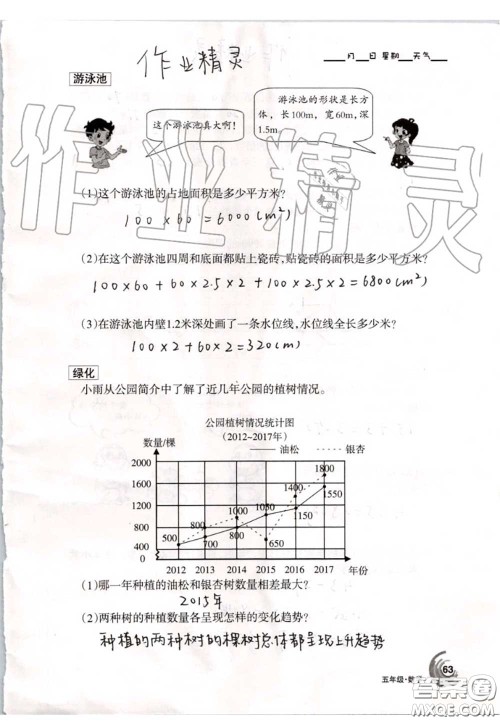 作业精灵
月 日 星期 天气
游泳池
这个游泳池真大啊!
游泳池的形状是长方
体，长100m，宽60m,深
1.5m。
(1)这个游泳池的占地面积是多少平方米?
100×60=6000(m²)
(2)在这个游泳池四周和底面都贴上瓷砖,贴瓷砖的面积是多少平方米?
100×60+60×2.5×2+100×2.5×2=6800(m²)
(3)在游泳池内壁1.2米深处画了一条水位线,水位线全长多少米?
100×2+60×2=320(m)
绿化
小雨从公园简介中了解了近几年公园的植树情况。
公园植树情况统计图
(2012~2017年)
数量/棵
油松 银杏
2000
1800
1600
1400
1200
1000
800
600
400
0
500 800 700 1000 800 1050 650 1400 1150 1800 1550
2012 2013 2014 2015 2016 2017 年份
(1)哪一年种植的油松和银杏树数量相差最大?
2015年
(2)两种树的种植数量各呈现怎样的变化趋势?
种植的两种树的棵树总体都呈现上升趋势
63
五年级·数学
作业精灵